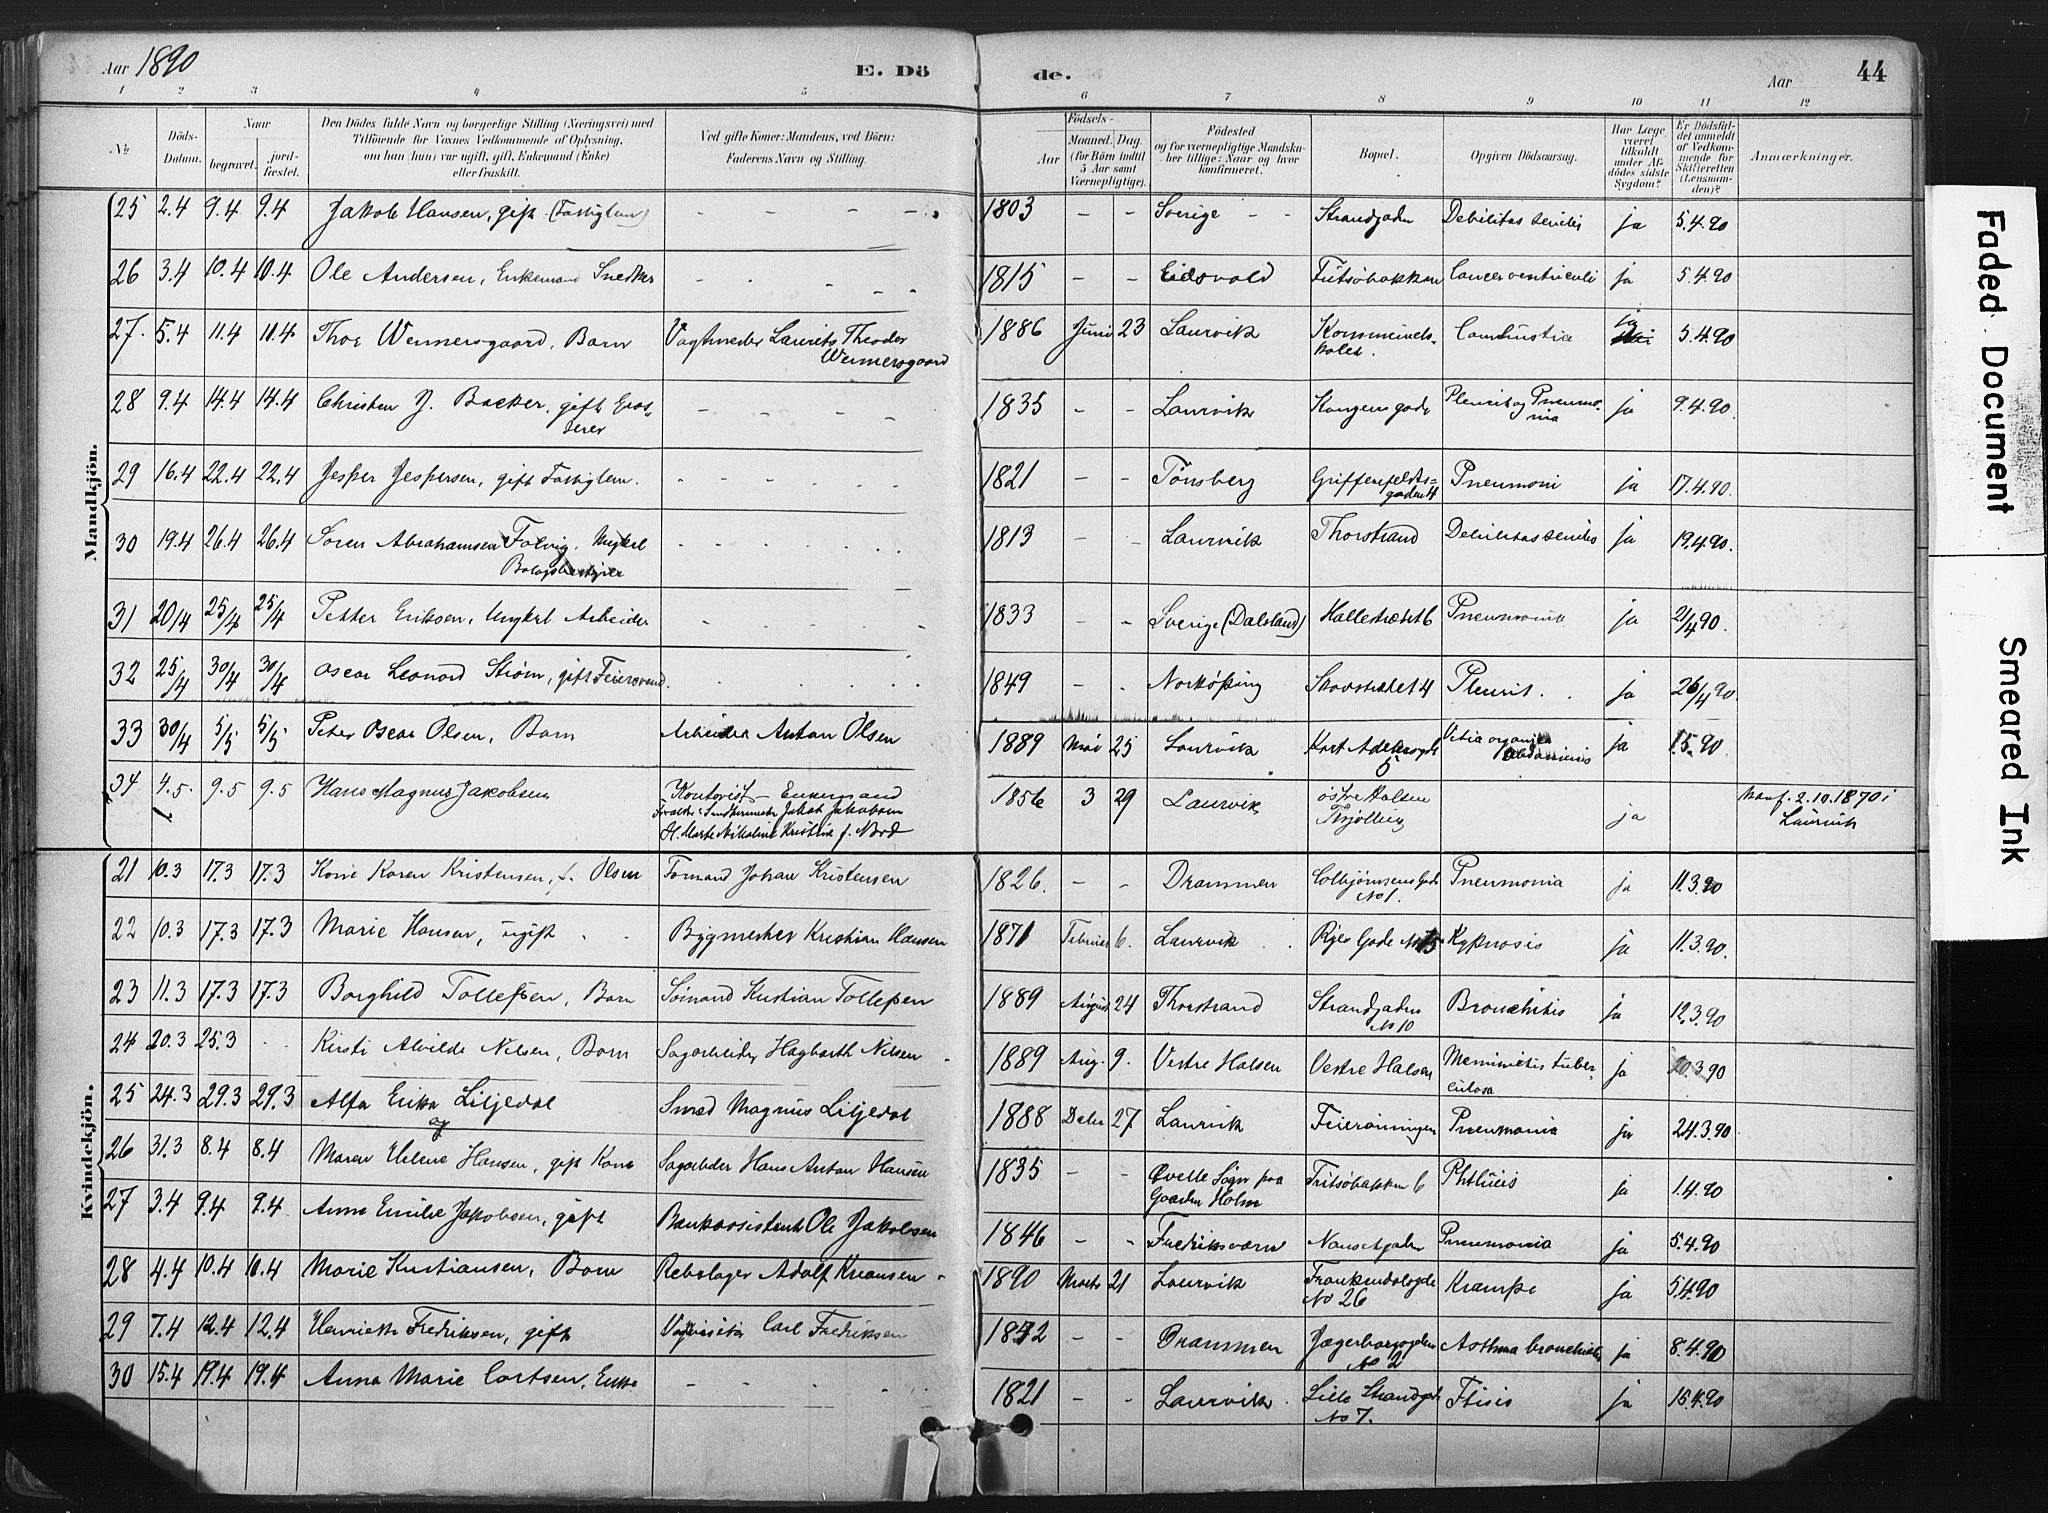 Aar 1890
E. Dö
de.
Aar
44
1 2 3 4 5 6 7 8 9 10 11 12
No
Döds-Datum.
Naar
begravet.
jord-fæstet.
Den Dödes fulde Navn og borgerlige Stilling (Næringsvei) med
Tilföiende for Voxnes Vedkommende af Oplysning,
om han (hun) var ugift, gift, Enkemand (Enke)
eller fraskilt.
Ved gifte Koner: Mandens, ved Börn:
Faderens Navn og Stilling.
Födsels-
Aar
Maaned. Dag.
(for Börn indtil
5 Aar samt
Værnepligtige).
Födested
og for værnepligtige Mandska-
ber tillige: Naar og hvor
konfirmeret.
Bopæl.
Opgiven Dödsaarsag.
Har Læge
været
tilkaldt
under Af-
dödes sidste
Sygdom?
Er Dödsfal-
det anmeldt
af Vedkom-
mende for
Skifteretten
(Lensman-
den)?
Anmærkninger.
Mandkjön.
25 2.4 9.4 9.4 Jakob Hansen, gift (Fattiglem) - - - - - 1803 - - Sverige - - Strandgaden Debilitas senilis ja 5.4.90
26 3.4 10.4 10.4 Ole Andersen, Enkemand Snedker - - - - - 1815 - - Eidsvold Fritsöbakken Cancer ventriculi ja 5.4.90
27. 5.4 11.4 11.4 Thor Wennersgaard, Barn Vagtmester Laurits Theodor
Wennersgaard 1886 Juni 23 Laurvik Kommunelo-
kalet. Combustia ja 5.4.90
28 9.4 14.4 14.4 Christen J. Backer, gift Gros-
serer - - - - 1835 - - Laurvik Kongensgade Pleurit og Pneumo-
nia ja 9.4.90.
29 16.4 22.4 22.4 Jesper Jespersen, gift Fattiglem. - - - - - 1821 - - Tönsberg Griffenfeldts-
gaden 4 Pneumoni ja 17.4.90.
30 19.4 26.4 26.4 Sören Abrahamsen Ugift
- - - - - 1813 - - Laurvik Thorstrand Debilitas senilis ja 19.4.90.
31 20/4 25/4 25/4 Petter Eriksen, Ugift Arbeider - - - - - 1833 - - Sverige (Dalsland) Hallestrædet 6 Pneumonia ja 21/4 90.
32 25/4 30/4 30/4 Oscar Leonard Ström, gift Feiersvend. - - - - 1849 - - Norköping Skovstrædet 4 Pleurit. ja 26/4 90
33 30/4 5/5 5/5 Peter Oscar Olsen, Barn Arbeider Anton Olsen 1889 Mai 25 Laurvik Kort Adelersgde
5 Vitia organica
abdominis ja 1.5.90
34 4.5. 9.5 9.5 Hans Magnus Jakobsen Kontorist - Enkemand
Jakob Jakobsen
Nikoline Kristine f. Nord 1856 3 29 Laurvik Östre Halsen
Tjölling ja Konf. 2.10.1870 i
Laurvik
Kvindekjön.
21 10.3 17.3 17.3 Kone Karen Kristensen, f. Olsen Formand Johan Kristensen 1826. - - Drammen Colbjörnsens Gade
No 1. Pneumonia ja 11.3.90
22 10.3 17.3 17.3 Marie Hansen, ugift Bygmester Kristian Hansen 1871 Februar 6. Laurvik Gade No 15 Kyphosis ja 11.3.90.
23 11.3 17.3 17.3 Borghild Tollefsen, Barn Sömand Kristian Tollefsen 1889 August 24 Thorstrand Strandgaden
No 10 Bronchitis ja 12.3.90
24 20.3 25.3 - - Kirsti Alvilde Nilsen, Barn Sagarbeider Hagbarth Nilsen 1889 Aug. 9. Vestre Halsen Vestre Halsen Meninitis tuber-
culosa ja 20.3.90
25 24.3 29.3 29.3 Alfa Erika Liljedal Smed Magnus Liljedal 1888 Decbr 27 Laurvik Pneumonia ja 24.3.90
26 31.3 8.4 8.4 Maren Helene Hansen, gift Kone Sagarbeider Hans Anton Hansen 1835 - - Qvelle Sogn paa
Gaarden Holm Fritsöbakken 6 Phthisis ja 1.4.90
27 3.4 9.4 9.4 Anne Emilie Jakobsen, gift Bankassistent Ole Jakobsen 1846 - - Fredriksværn Nansetgaden Pneumonia ja 5.4.90
28 4.4 10.4 10.4 Marie Kristiansen, Barn Rebslager Adolf 1890 Marts 21 Laurvik Frankendalsgde
No 26 Krampe ja 5.4.90
29 7.4 12.4 12.4 Henriette Fredriksen, gift Carl Fredriksen 1842 - - Drammen Jegerborgsgden
No 2 Asthma bronchialis ja 8.4.90
30 15.4 19.4 19.4 Anna Marie Cortsen, Enke - - - - 1821 - - Laurvik Lille Strandgde
No 7. Ftisis ja 15.4.90
Faded Document
Smeared Ink